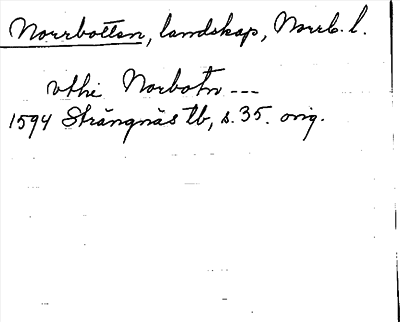 Norrbotten, landskap, Norrb. l.
vthi Norbotn ---
1594 Strängnäs tb, s. 35. orig.